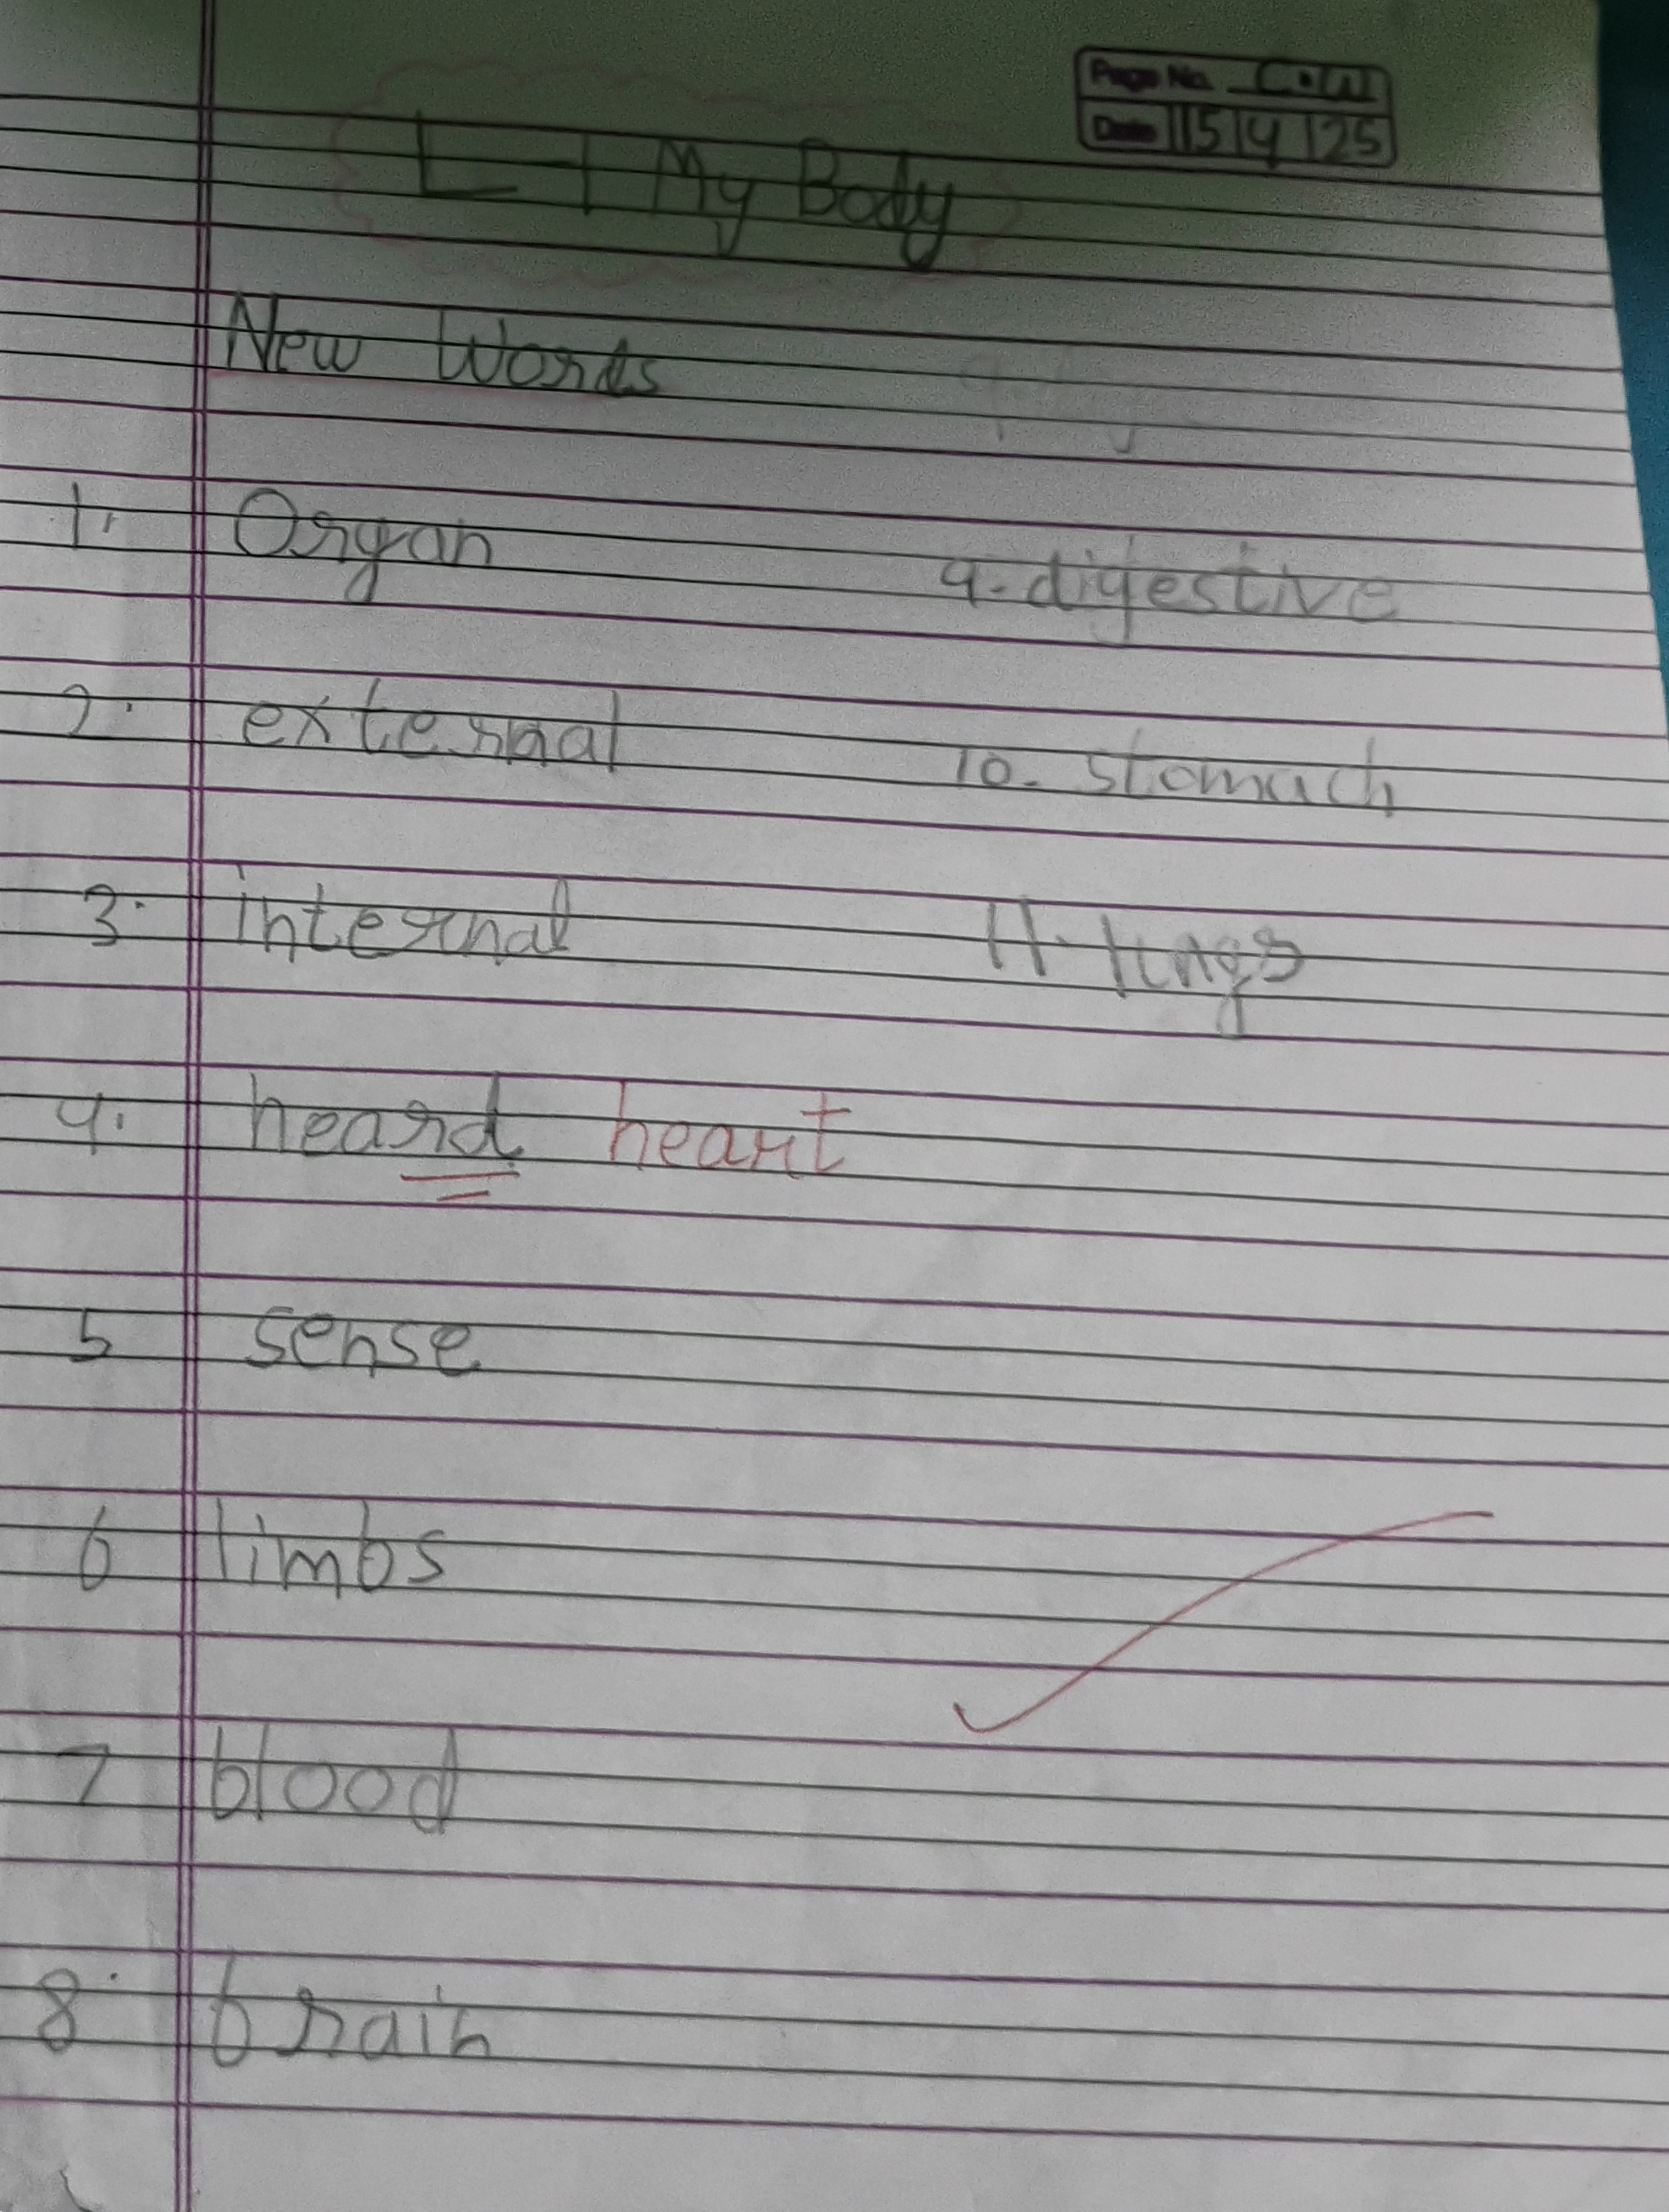 Page No. C.W
Date 15 4 25
L-1 My Body
New Words
1. Organ
2. external
3. internal
4. heard heart
5 sense
6 limbs
7 blood
8. brain
9. digestive
10. stomach
11. lungs